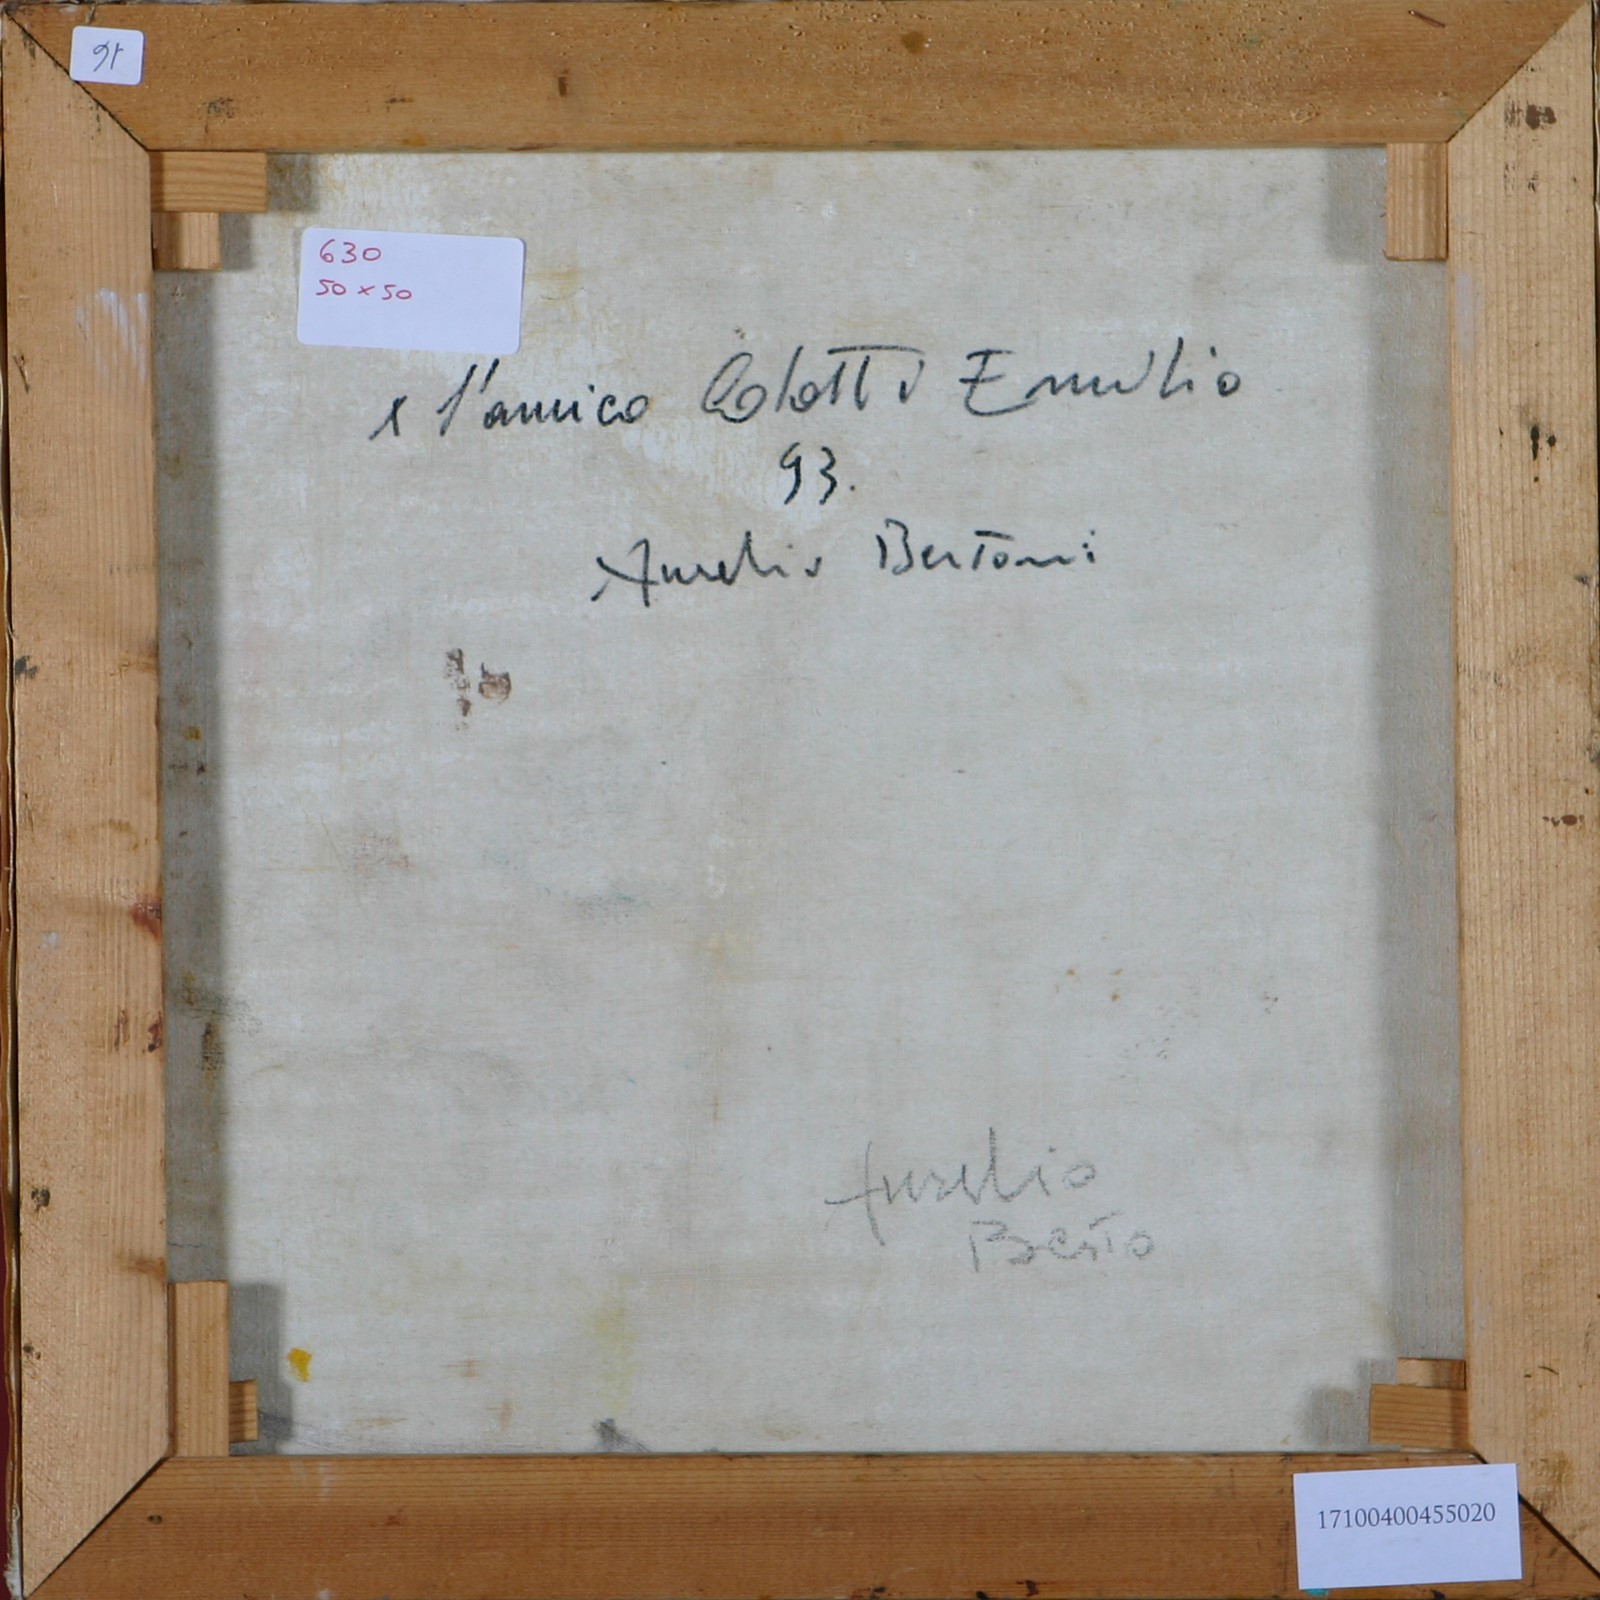 16
630
50 x 50
x l'amico Colotti Emilio
93.
Aurelio Bertoni
Aurelio
Berto
17100400455020